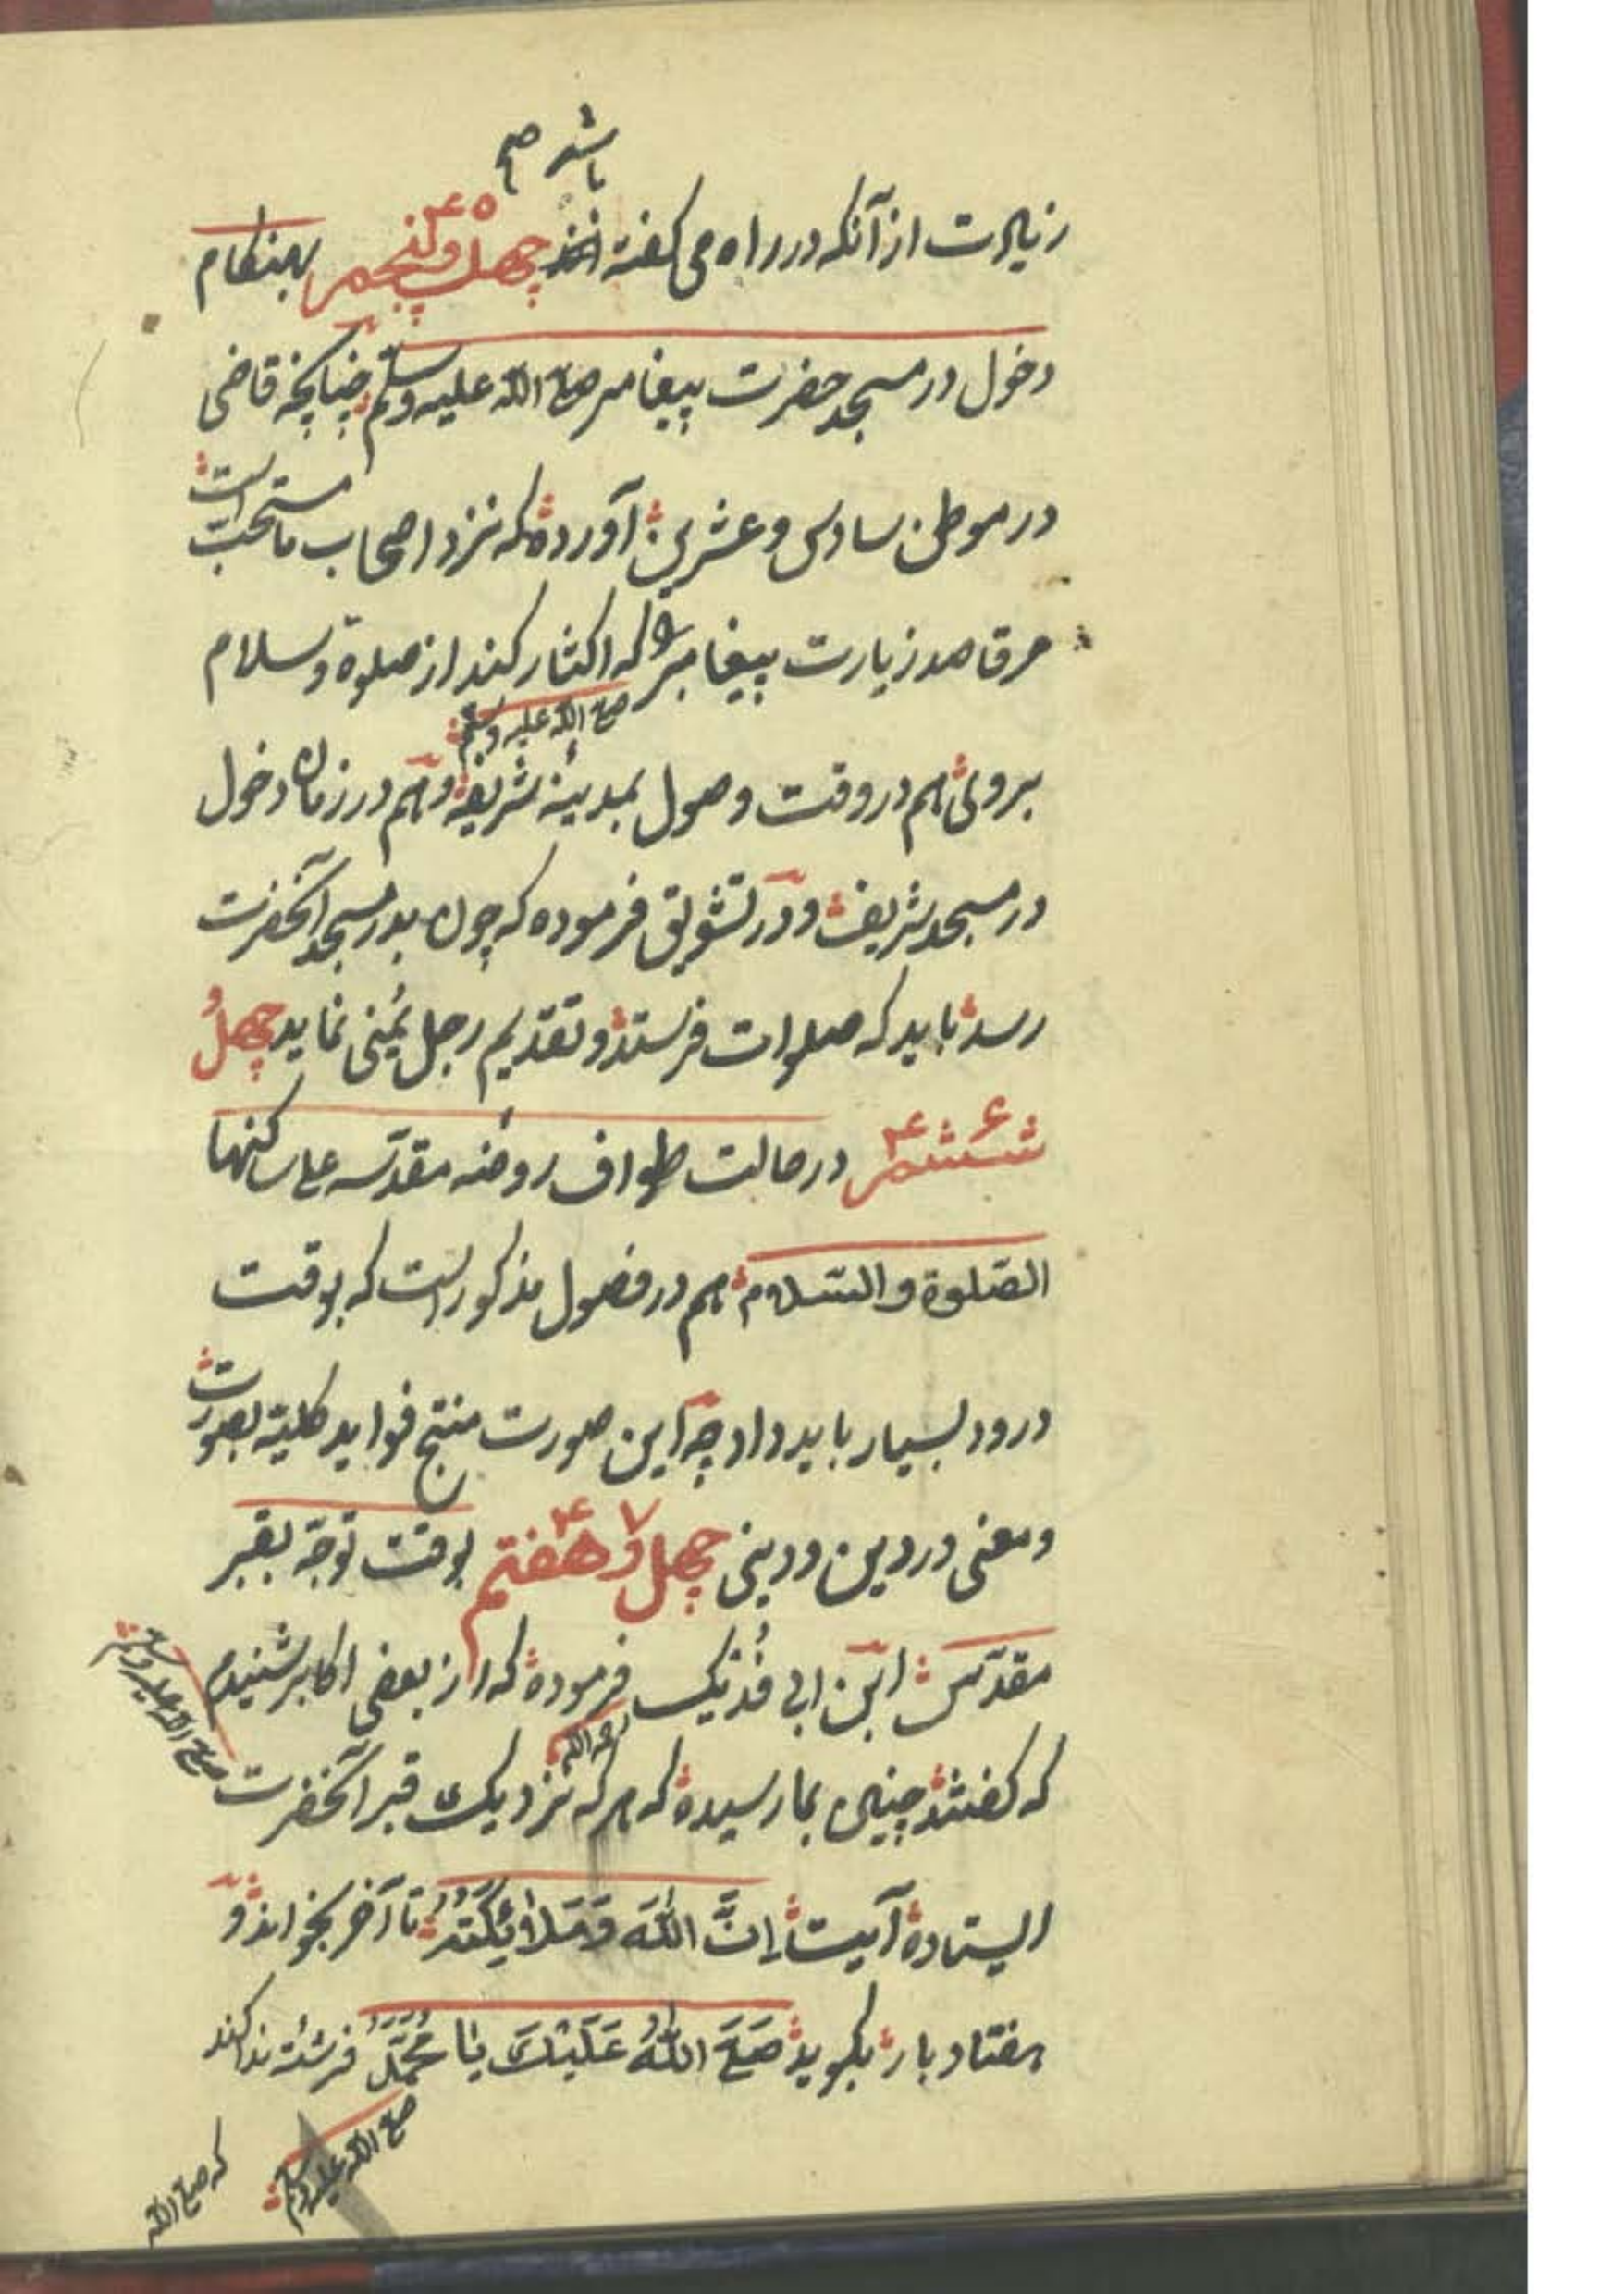 باشد صح
زیاده‌ت از آنکه در راه می کفته اند چهل و پنجم ۴۵ بهنکام
دخول در مسجد حضرت پیغامبر صلی الله علیه وسلم چنانچه قاضی
در موطن سادس وعشرین آورده که نزد اصحاب ما مستحب است
مر قاصد زیارت پیغامبر را که اکثار کند از صلوة وسلام
صلی الله علیه وسلم
بروی هم در وقت وصول بمدینه شریفه وهم در زمان دخول
در مسجد شریف ودر تشویق فرموده که چون بدر مسجد آنحضرت
رسد باید که صلوات فرستد وتقدیم رجل یُمنی نماید چهل و
ششم ۴۶ در حالت طواف روضه مقدّسه علی ساکنها
الصّلوة والسّلام هم در فصول مذکور است که بوقت
درود بسیار باید داد چه این صورت منتج فواید کلیّه بصورت
ومعنی در دین ودینی چهل و هفتم ۴۷ بوقت توجّه بقبر
مقدّس ابن ابی فُدَیک فرموده که از بعضی اکابر شنیدم
رحمه الله
که کفتند چنین بما رسیده که هرکه نزدیک قبر آنحضرت
صلی الله علیه وسلم
ایستاده آیت إِنَّ اللّٰهَ وَمَلَائِكَتَهُ تا آخر بخواند و
هفتاد بار بکوید صَلَّى اللّٰهُ عَلَيْكَ يَا مُحَمَّدُ فرشته ندا کند
صلی الله علیه وسلم
که صلی الله